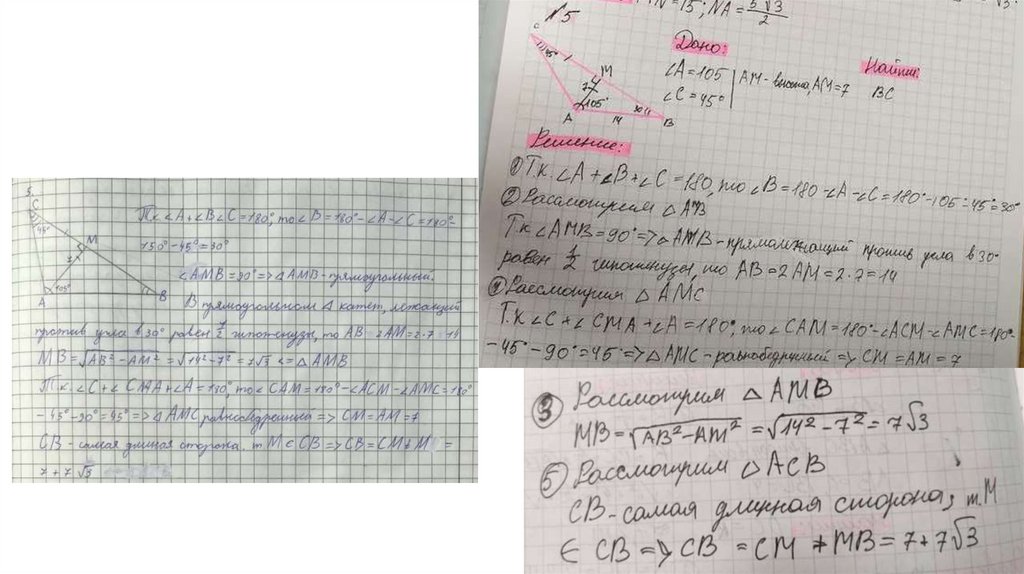 5.
C
45°
M
7
A
105°
B
Т.к. ∠A+∠B∠C=180°, то ∠B=180°-∠A-∠C=180°-
150°-45°=30°
∠AMB=90°=>△AMB-прямоугольный.
В прямоугольном △ катет, лежащий
против угла в 30° равен ½ гипотенузы, то AB=2AM=2·7=14
MB=√AB²-AM²=√14²-7²=7√3 <= △AMB
Т.к. ∠C+∠CMA+∠A=180°, то ∠CAM=180°-∠ACM-∠AMC=180°
-45°-90°=45°=>△AMC равнобедренный => CM=AM=7
CB-самая длинная сторона. т.M∈CB=>CB=CM+M =
7+7√3
=15°; NA=5√3/2
√3.
№5
C
45°
M
7
A
105°
14
30°
B
Дано:
∠A=105
∠C=45°
AM-высота, AM=7
Найти:
BC
Решение:
① Т.к. ∠A+∠B+∠C=180, то ∠B=180-∠A-∠C=180°-105=45°=30°
② Рассмотрим △AMB
Т.к ∠AMB=90°=>△AMB-прямолежащий против угла в 30°
равен ½ гипотенузы, то AB=2AM=2·7=14
④ Рассмотрим △AMC
Т.к ∠C+∠CMA+∠A=180°, то ∠CAM=180°-∠ACM-∠AMC=180°-
-45°-90°=45°=>△AMC-равнобедренный => CM=AM=7
③ Рассмотрим △AMB
MB=√AB²-AM²=√14²-7²=7√3
⑤ Рассмотрим △ACB
CB-самая длинная сторона, т.M
∈ CB => CB=CM+MB=7+7√3